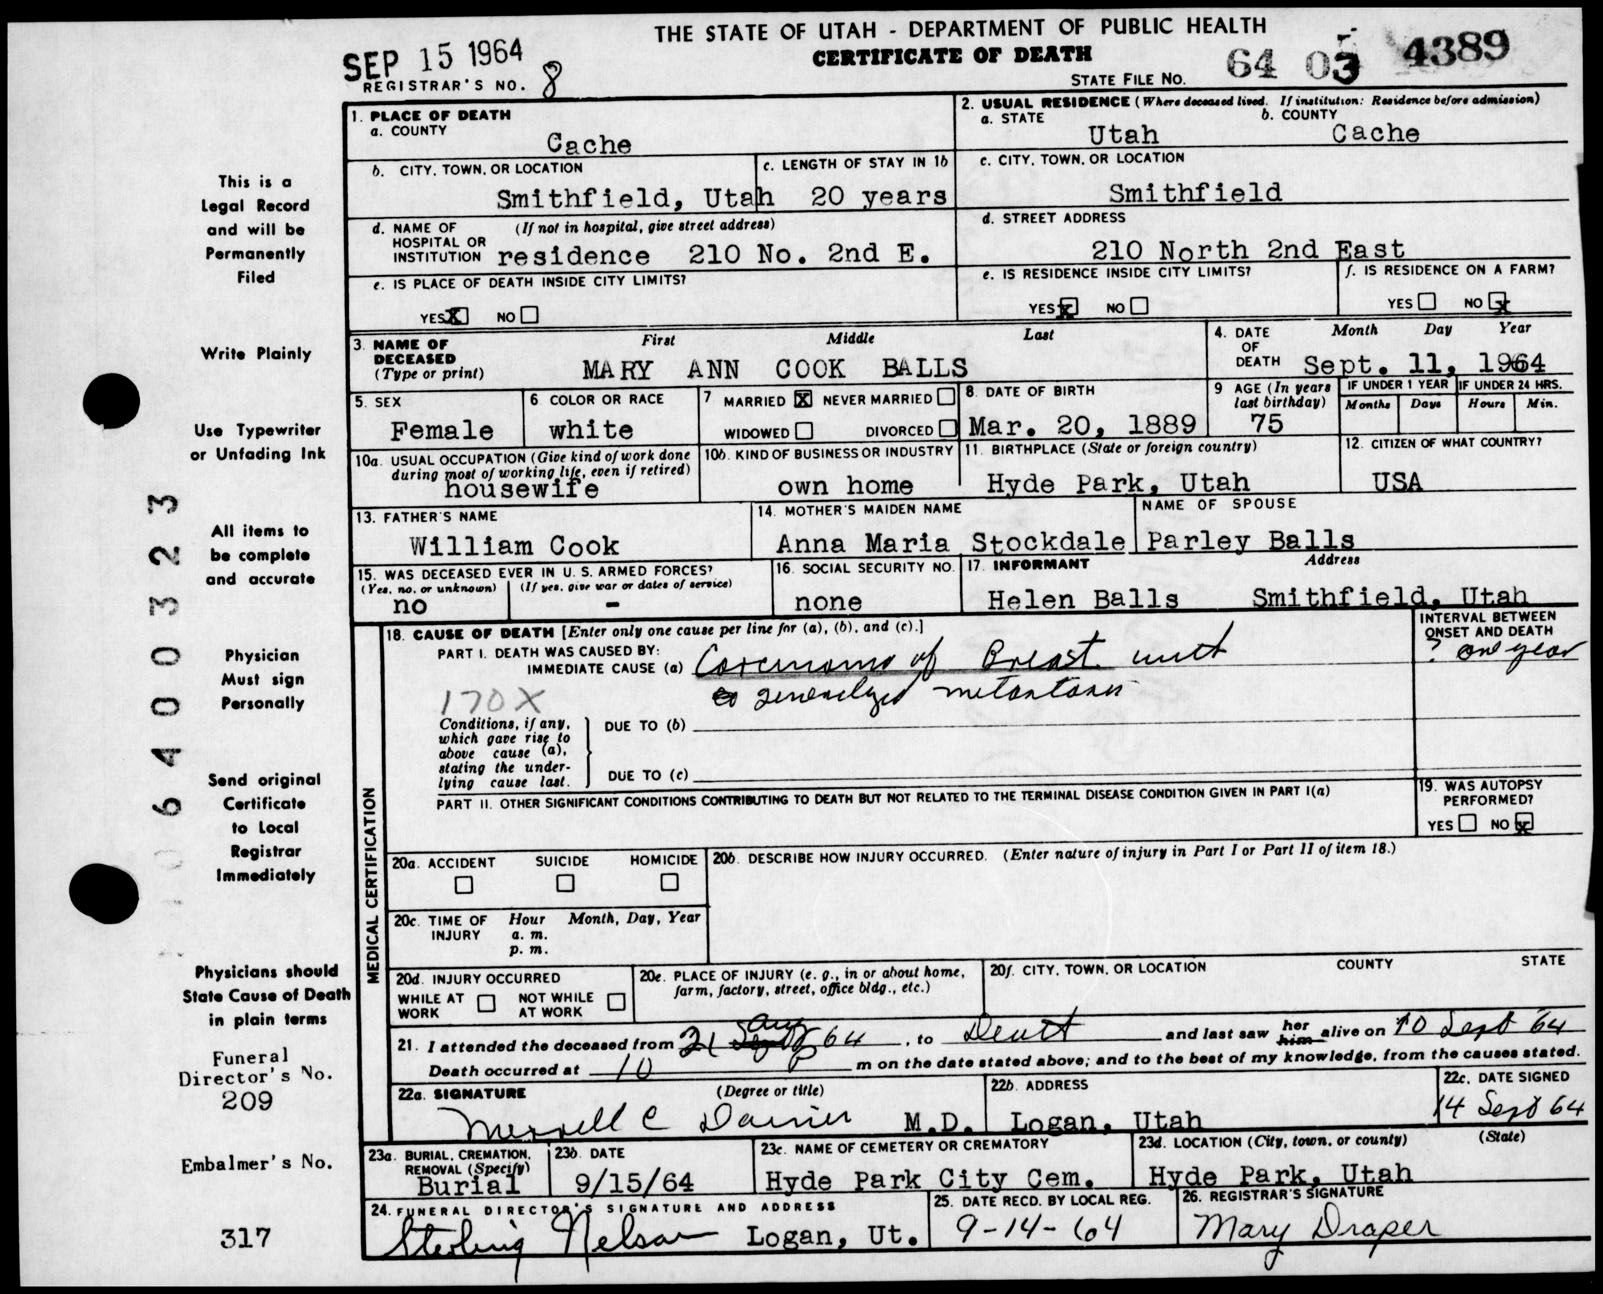 THE STATE OF UTAH - DEPARTMENT OF PUBLIC HEALTH
CERTIFICATE OF DEATH
SEP 15 1964
REGISTRAR'S NO. 8
STATE FILE NO. 64 03 4389
1. PLACE OF DEATH
a. COUNTY
Cache
2. USUAL RESIDENCE (Where deceased lived. If institution: Residence before admission)
a. STATE b. COUNTY
Utah Cache
b. CITY, TOWN, OR LOCATION
Smithfield, Utah
c. LENGTH OF STAY IN 1b
20 years
c. CITY, TOWN, OR LOCATION
Smithfield
d. NAME OF HOSPITAL OR INSTITUTION (If not in hospital, give street address)
residence 210 No. 2nd E.
d. STREET ADDRESS
210 North 2nd East
e. IS PLACE OF DEATH INSIDE CITY LIMITS?
YES X NO
e. IS RESIDENCE INSIDE CITY LIMITS?
YES X NO
f. IS RESIDENCE ON A FARM?
YES NO X
3. NAME OF DECEASED (Type or print)
First Middle Last
MARY ANN COOK BALLS
4. DATE OF DEATH Month Day Year
Sept. 11, 1964
5. SEX
Female
6 COLOR OR RACE
white
7 MARRIED X NEVER MARRIED
WIDOWED DIVORCED
8. DATE OF BIRTH
Mar. 20, 1889
9 AGE (In years last birthday)
75
IF UNDER 1 YEAR IF UNDER 24 HRS.
Months Days Hours Min.
10a. USUAL OCCUPATION (Give kind of work done during most of working life, even if retired)
housewife
10b. KIND OF BUSINESS OR INDUSTRY
own home
11. BIRTHPLACE (State or foreign country)
Hyde Park, Utah
12. CITIZEN OF WHAT COUNTRY?
USA
13. FATHER'S NAME
William Cook
14. MOTHER'S MAIDEN NAME
Anna Maria Stockdale
NAME OF SPOUSE
Parley Balls
15. WAS DECEASED EVER IN U. S. ARMED FORCES?
(Yes, no, or unknown) (If yes, give war or dates of service)
no -
16. SOCIAL SECURITY NO.
none
17. INFORMANT Address
Helen Balls Smithfield, Utah
MEDICAL CERTIFICATION
18. CAUSE OF DEATH [Enter only one cause per line for (a), (b), and (c).]
INTERVAL BETWEEN ONSET AND DEATH
PART I. DEATH WAS CAUSED BY:
IMMEDIATE CAUSE (a) Carcinoma of Breast with
? one year
generalized metastases
170X
Conditions, if any, which gave rise to above cause (a), stating the underlying cause last.
DUE TO (b)
DUE TO (c)
PART II. OTHER SIGNIFICANT CONDITIONS CONTRIBUTING TO DEATH BUT NOT RELATED TO THE TERMINAL DISEASE CONDITION GIVEN IN PART I(a)
19. WAS AUTOPSY PERFORMED?
YES NO X
20a. ACCIDENT SUICIDE HOMICIDE
20b. DESCRIBE HOW INJURY OCCURRED. (Enter nature of injury in Part I or Part II of item 18.)
20c. TIME OF INJURY Hour Month, Day, Year
a. m.
p. m.
20d. INJURY OCCURRED
WHILE AT WORK NOT WHILE AT WORK
20e. PLACE OF INJURY (e. g., in or about home, farm, factory, street, office bldg., etc.)
20f. CITY, TOWN, OR LOCATION COUNTY STATE
21. I attended the deceased from 21 Aug 64, to Death and last saw her him alive on 10 Sept 64
Death occurred at 10 m on the date stated above; and to the best of my knowledge, from the causes stated.
22a. SIGNATURE (Degree or title)
Merrell C M.D.
22b. ADDRESS
Logan, Utah
22c. DATE SIGNED
14 Sept 64
23a. BURIAL, CREMATION, REMOVAL (Specify)
Burial
23b. DATE
9/15/64
23c. NAME OF CEMETERY OR CREMATORY
Hyde Park City Cem.
23d. LOCATION (City, town, or county) (State)
Hyde Park, Utah
24. FUNERAL DIRECTOR'S SIGNATURE AND ADDRESS
Sterling Nelson Logan, Ut.
25. DATE RECD. BY LOCAL REG.
9-14-64
26. REGISTRAR'S SIGNATURE
Mary Draper
This is a
Legal Record
and will be
Permanently
Filed
Write Plainly
Use Typewriter
or Unfading Ink
All items to
be complete
and accurate
Physician
Must sign
Personally
Send original
Certificate
to Local
Registrar
Immediately
Physicians should
State Cause of Death
in plain terms
Funeral
Director's No.
209
Embalmer's No.
317
6400323